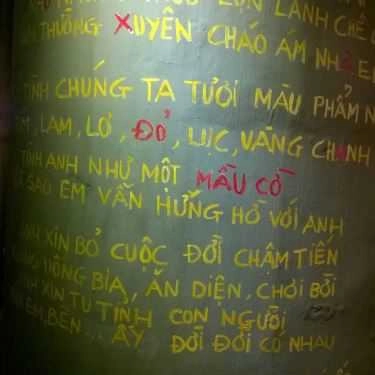 LẠNH CHẾ
THƯỜNG XUYÊN CHÁO ÁM NHẢ
TÌNH CHÚNG TA TƯƠI MÀU PHẨM
LAM, LƠ, ĐỎ, LỤC, VÀNG CHANH
TÌNH ANH NHƯ MỘT MẦU CỜ
SAO EM VẪN HỮNG HỜ VỚI ANH
XIN BỎ CUỘC ĐỜI CHẬM TIẾN
BIA, ĂN DIỆN, CHƠI BỜI
XIN TU TỈNH CON NGƯỜI
EM, BÊN... ẤY ĐỜI ĐỜI CÓ NHAU